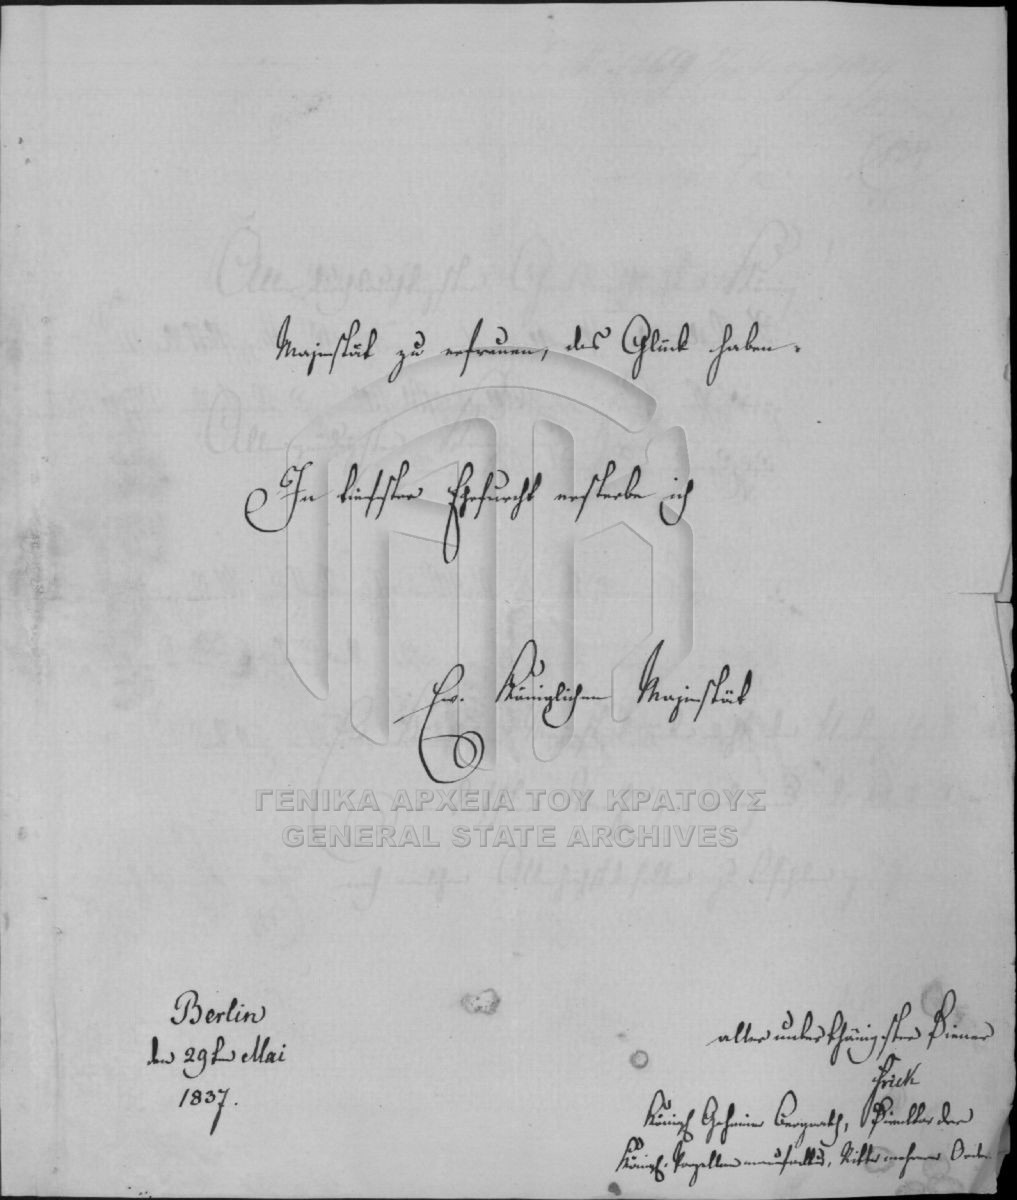 Majestät zu erfreuen, das Glück haben.
In tiefster Ehrfurcht ersterbe ich
Ew. Königlichen Majestät
ΓΕΝΙΚΑ ΑΡΧΕΙΑ ΤΟΥ ΚΡΑΤΟΥΣ
GENERAL STATE ARCHIVES
Berlin
den 29ten Mai
1837.
allerunterthänigster Diener
Frick
Königl. Geheimer Bergrath, Direktor der
Königl. Porzellanmanufaktur, Ritter mehrerer Orden